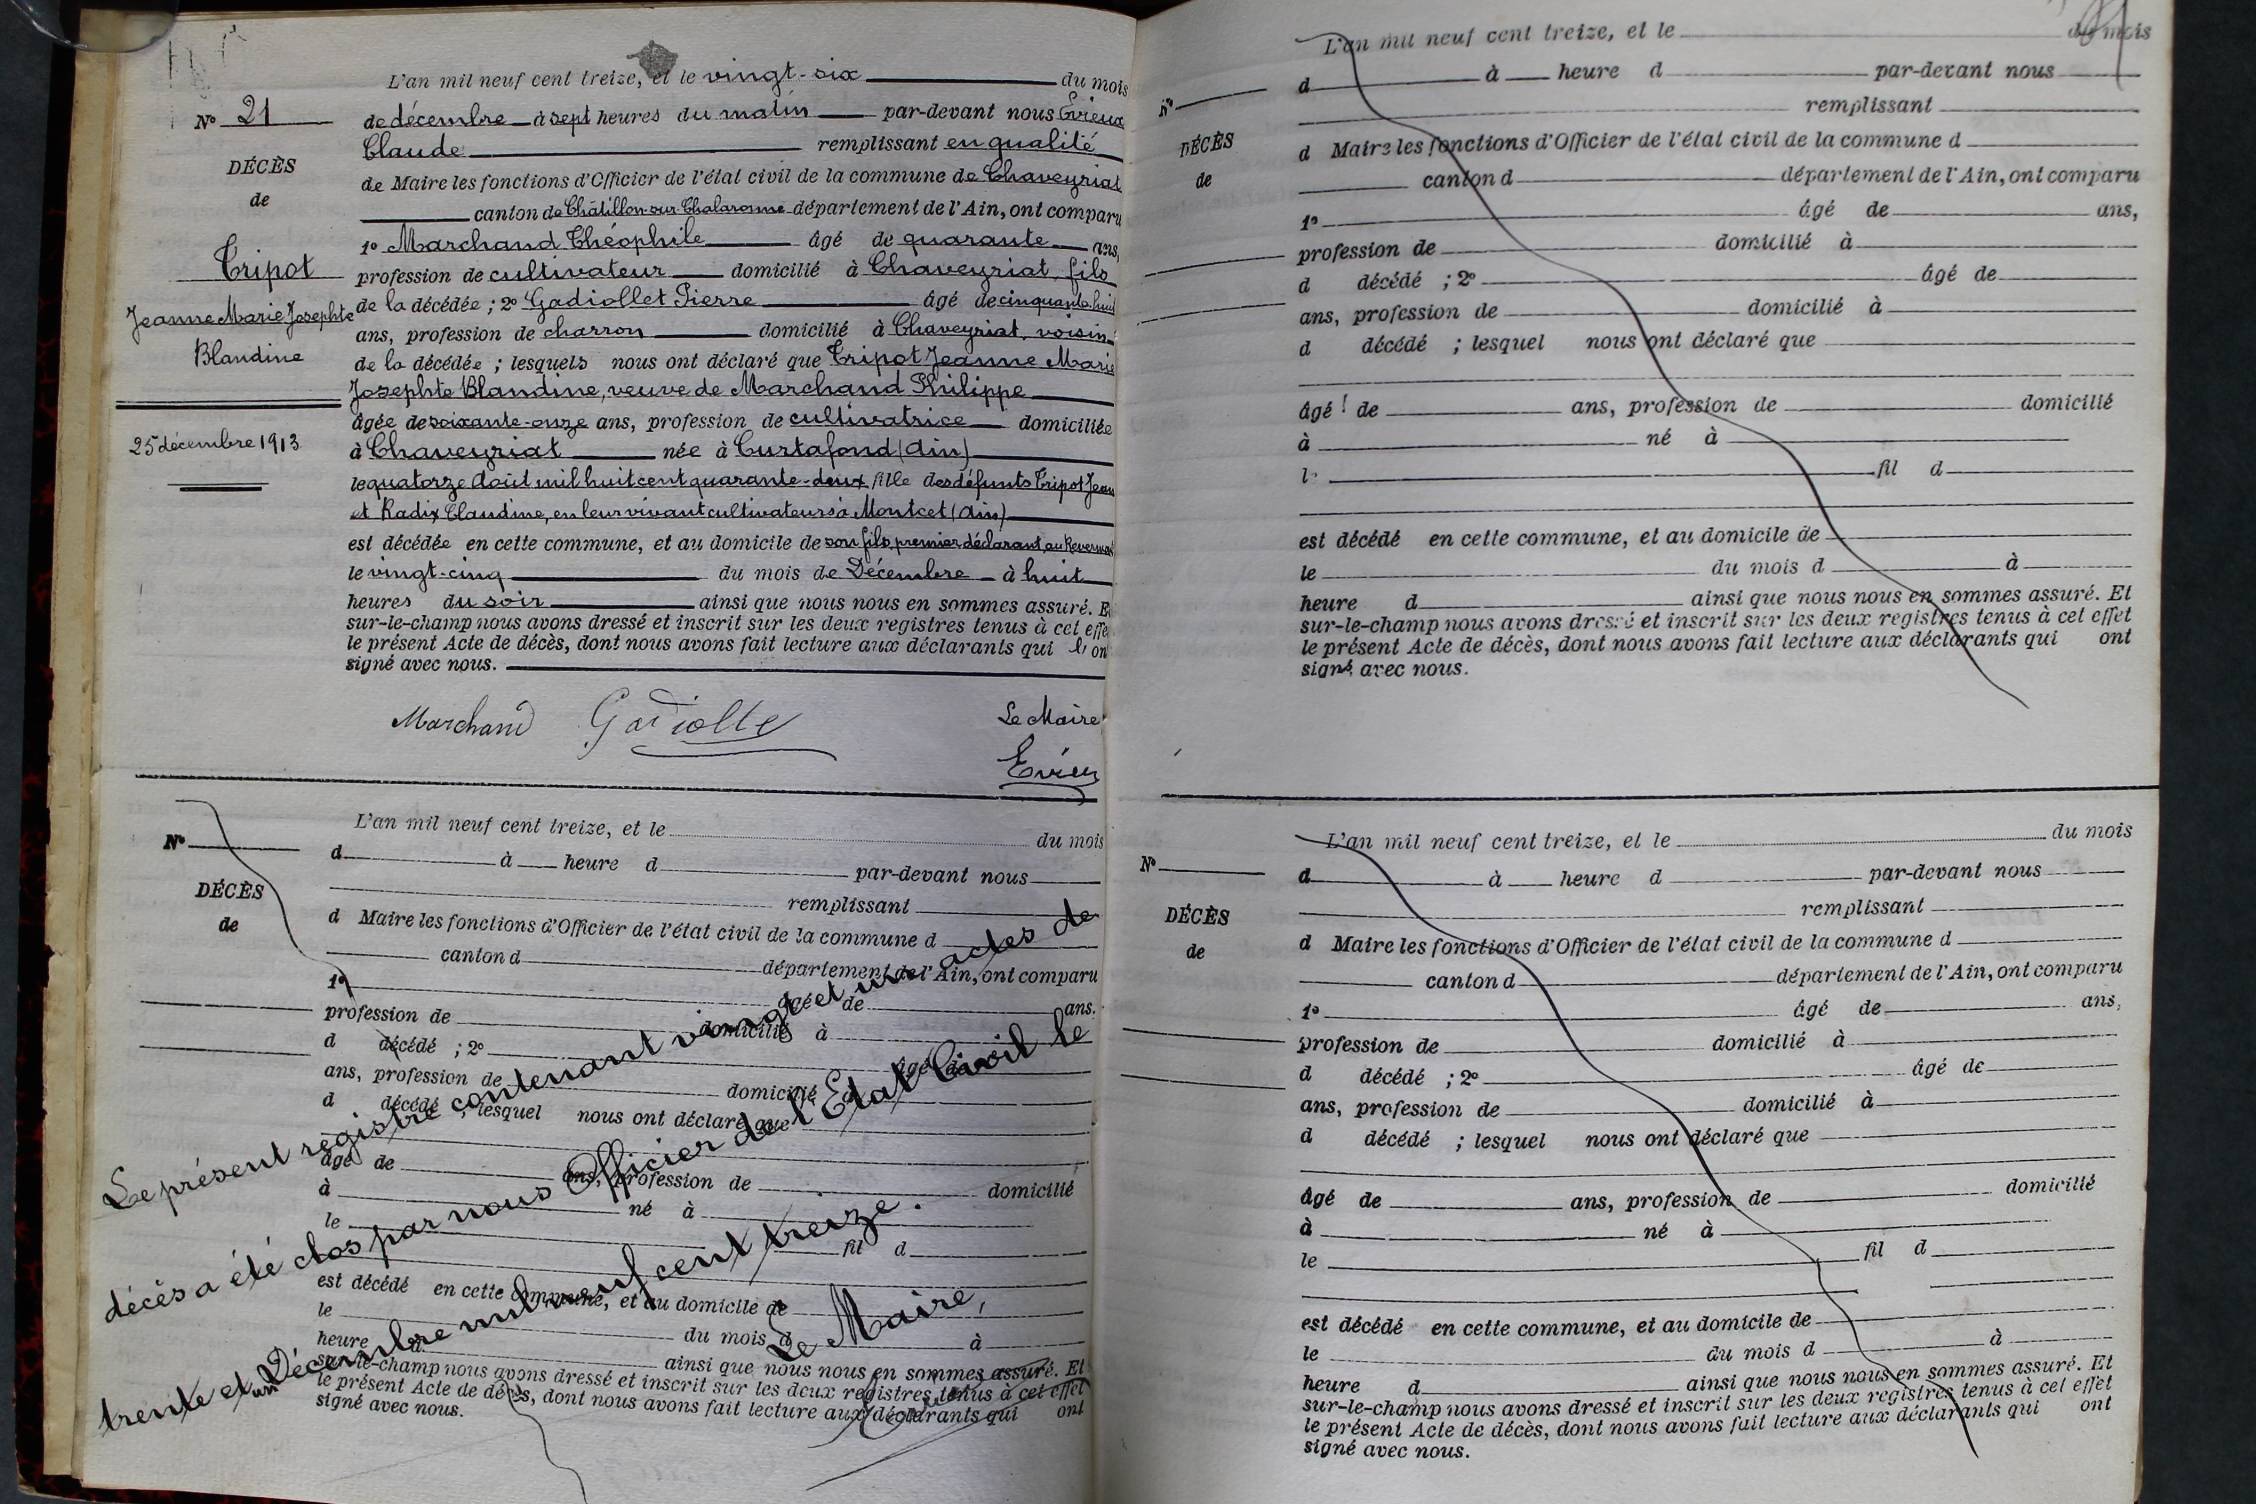 L'an mil neuf cent treize, et le vingt-six du mois
N° 21
de décembre à sept heures du matin par-devant nous Evieux
Claude remplissant en qualité
DÉCÈS
de Maire les fonctions d'Officier de l'état civil de la commune de Chaveyriat
de
canton de Châtillon-sur-Chalaronne département de l'Ain, ont comparu
1° Marchand Théophile âgé de quarante ans,
Tripot
profession de cultivateur domicilié à Chaveyriat, fils
Jeanne Marie Josephte
de la décédée ; 2° Gadiollet Pierre âgé de cinquante-huit
ans, profession de charron domicilié à Chaveyriat, voisin
Blandine
de la décédée ; lesquels nous ont déclaré que Tripot Jeanne Marie
Josephte Blandine, veuve de Marchand Philippe
âgée de soixante-onze ans, profession de cultivatrice domiciliée
25 décembre 1913
à Chaveyriat née à Curtafond (Ain)
le quatorze Août mil huit cent quarante-deux fille des défunts Tripot Jean
et Radix Claudine, en leur vivant cultivateurs à Montcet (Ain)
est décédée en cette commune, et au domicile de son fils, premier déclarant, au
le vingt-cinq du mois de Décembre à huit
heures du soir ainsi que nous nous en sommes assuré. Et
sur-le-champ nous avons dressé et inscrit sur les deux registres tenus à cet effet
le présent Acte de décès, dont nous avons fait lecture aux déclarants qui ont
signé avec nous.
Marchand Gadiolle Le Maire
Evieux
L'an mil neuf cent treize, et le du mois
N°
d à heure d par-devant nous
DÉCÈS
remplissant
de
d Maire les fonctions d'Officier de l'état civil de la commune d
canton d département de l'Ain, ont comparu
1° âgé de ans.
profession de domicilié à
d décédé ; 2° âgé de
ans, profession de domicilié à
d décédé ; lesquel nous ont déclaré que
âgé de ans, profession de domicilié
à né à
le fil d
est décédé en cette commune, et au domicile de
le du mois d à
heure d ainsi que nous nous en sommes assuré. Et
sur-le-champ nous avons dressé et inscrit sur les deux registres tenus à cet effet
le présent Acte de décès, dont nous avons fait lecture aux déclarants qui ont
signé avec nous.
Le présent registre contenant vingt et un actes de
décès a été clos par nous Officier de l'Etat Civil le
trente et un Décembre mil neuf cent treize.
Le Maire,
L'an mil neuf cent treize, et le du mois
N°
d à heure d par-devant nous
remplissant
DÉCÈS
d Maire les fonctions d'Officier de l'état civil de la commune d
de
canton d département de l'Ain, ont comparu
1° âgé de ans,
profession de domicilié à
d décédé ; 2° âgé de
ans, profession de domicilié à
d décédé ; lesquel nous ont déclaré que
âgé de ans, profession de domicilié
à né à
l fil d
est décédé en cette commune, et au domicile de
le du mois d à
heure d ainsi que nous nous en sommes assuré. Et
sur-le-champ nous avons dressé et inscrit sur les deux registres tenus à cet effet
le présent Acte de décès, dont nous avons fait lecture aux déclarants qui ont
signé avec nous.
L'an mil neuf cent treize, et le du mois
N°
d à heure d par-devant nous
remplissant
DÉCÈS
d Maire les fonctions d'Officier de l'état civil de la commune d
de
canton d département de l'Ain, ont comparu
1° âgé de ans,
profession de domicilié à
d décédé ; 2° âgé de
ans, profession de domicilié à
d décédé ; lesquel nous ont déclaré que
âgé de ans, profession de domicilié
à né à
le fil d
est décédé en cette commune, et au domicile de
le du mois d à
heure d ainsi que nous nous en sommes assuré. Et
sur-le-champ nous avons dressé et inscrit sur les deux registres tenus à cet effet
le présent Acte de décès, dont nous avons fait lecture aux déclarants qui ont
signé avec nous.